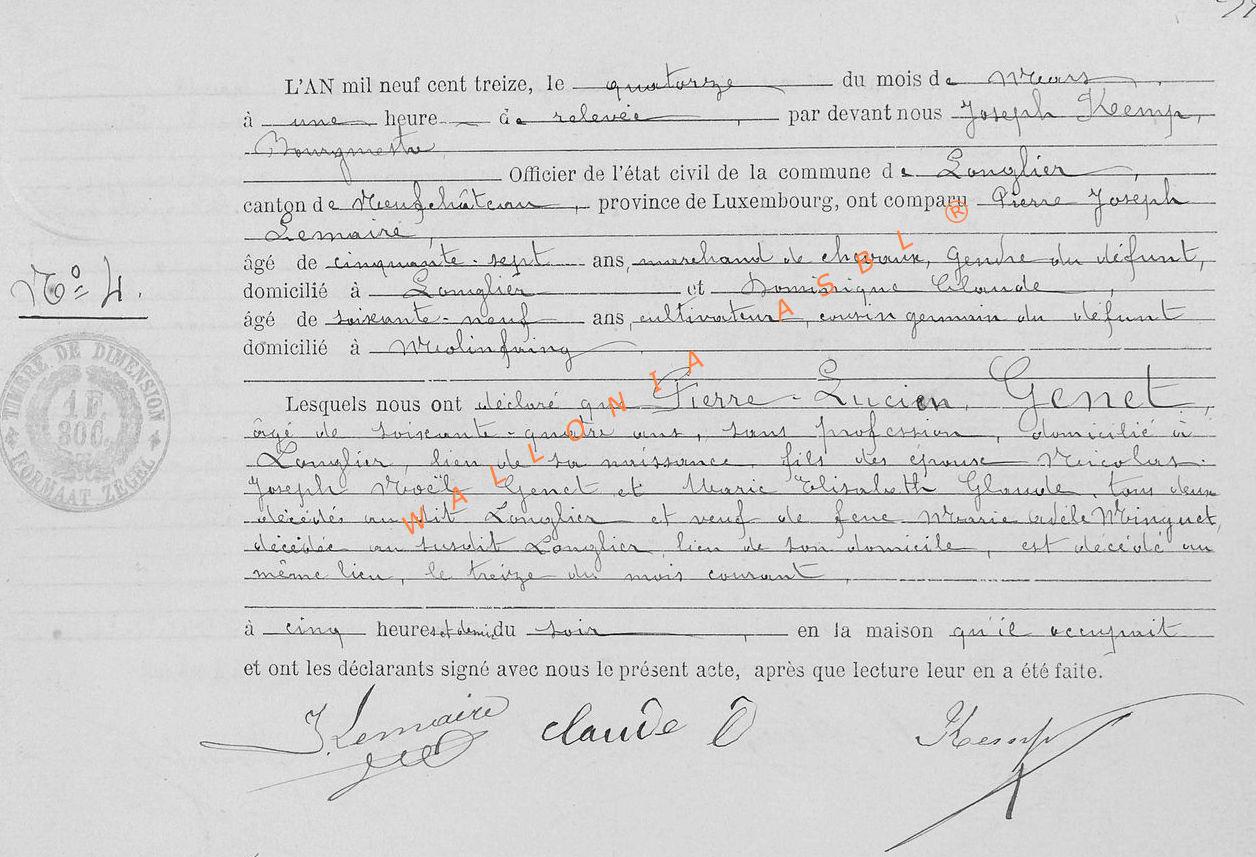 L'AN mil neuf cent treize, le quatorze du mois de Mars,
à une heure de relevée, par devant nous Joseph Kemp,
Bourgmestre
Officier de l'état civil de la commune de Longlier,
canton de Neufchâteau, province de Luxembourg, ont comparu Pierre Joseph
Lemaire,
âgé de cinquante-sept ans, marchand de chevaux, gendre du défunt,
domicilié à Longlier et Dominique Claude,
N° 4.
âgé de soixante-neuf ans, cultivateur, cousin germain du défunt
domicilié à Molinfaing.
Lesquels nous ont déclaré que Pierre-Lucien Genet,
âgé de soixante-quatre ans, sans profession, domicilié à
Longlier, lieu de sa naissance, fils des époux Nicolas-
Joseph Noël Genet et Marie Elisabeth Glaude, tous deux
décédés au dit Longlier et veuf de feue Marie Adèle Minguet,
décédée au susdit Longlier, lieu de son domicile, est décédé au
même lieu, le treize du mois courant,
à cinq heures et demi du soir, en la maison qu'il occupait
et ont les déclarants signé avec nous le présent acte, après que lecture leur en a été faite.
J. Lemaire claude D Kemp
TIMBRE DE DIMENSION
1 F. 30 C.
FORMAAT ZEGEL
WALLONIA ASBL ®